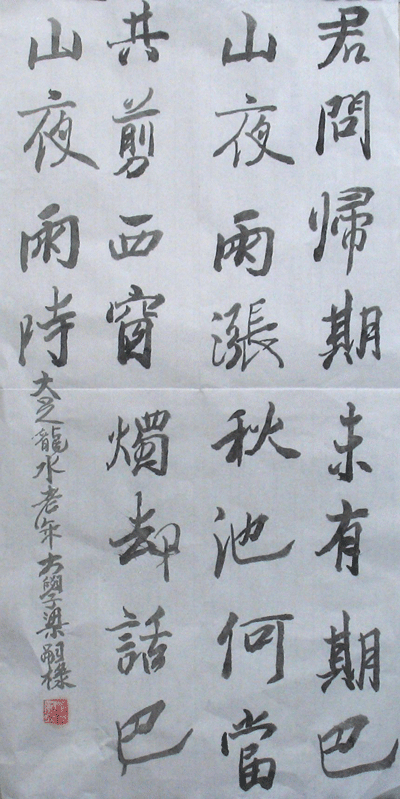 君問歸期未有期巴
山夜雨漲秋池何當
共剪西窗燭却話巴
山夜雨時
大足龍水老年大學梁嗣樑